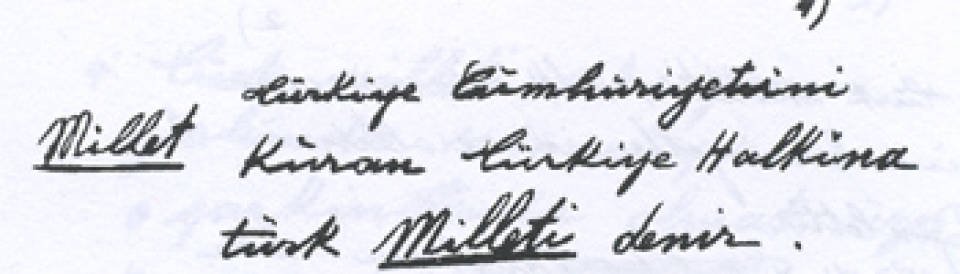 Millet
Türkiye Cümhuriyetini
Kuran türkiye Halkına
türk Milleti denir.